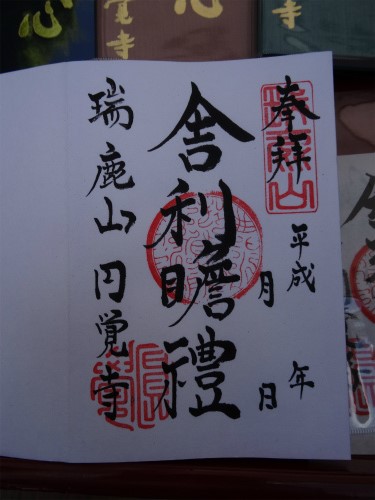 奉拝
平成　年
月　日
舎利瞻禮
瑞鹿山円覚寺
心
覚寺
心
寺